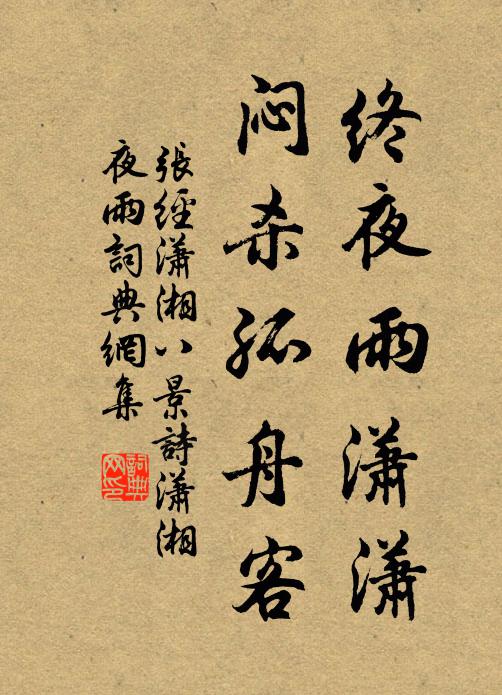 终夜雨潇潇
闷杀孤舟客
張經瀟湘八景詩瀟湘
夜雨詞典網集
詞典网印